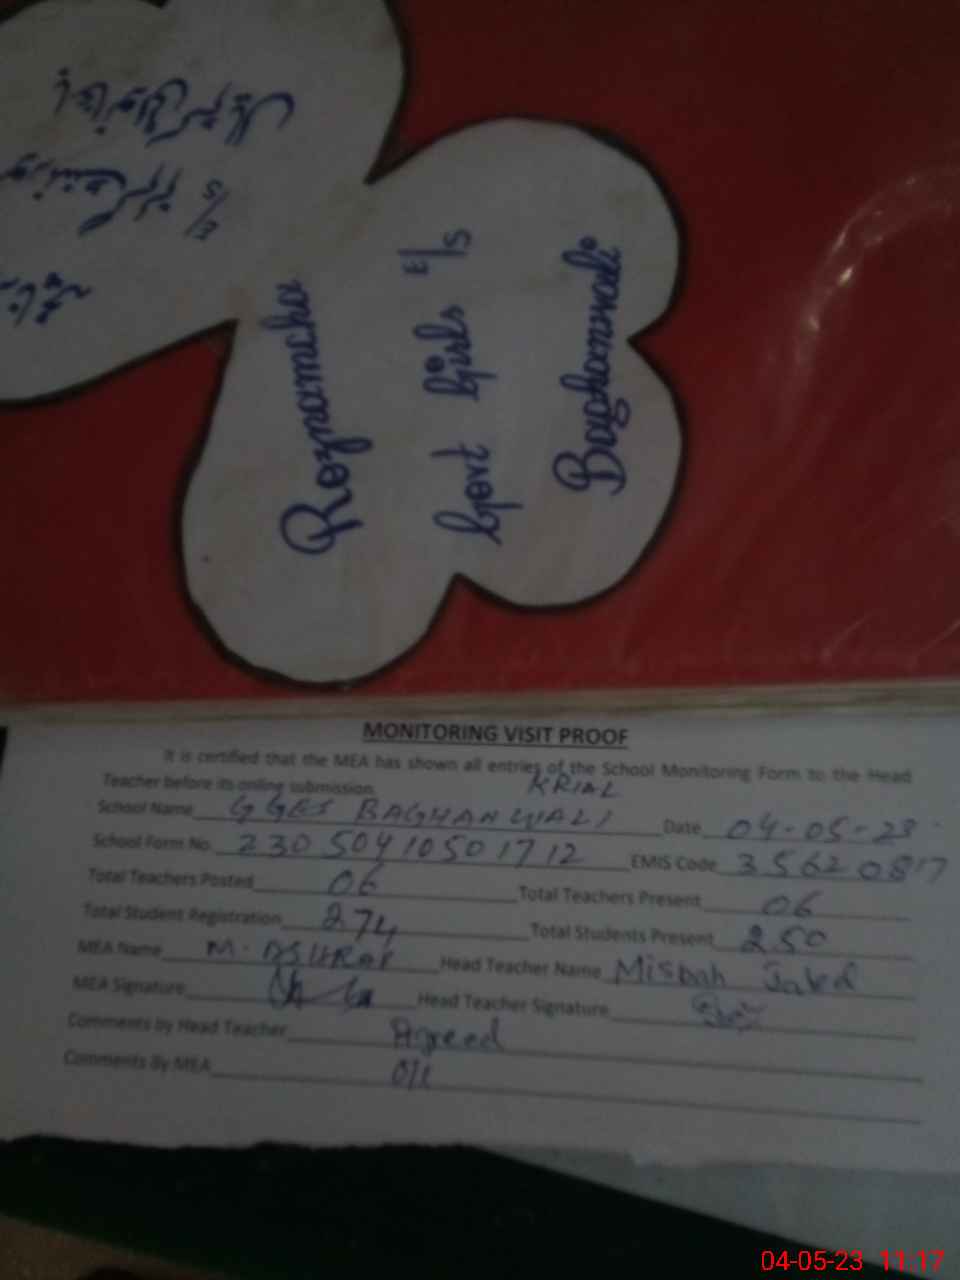 E/S
Roznamcha
Govt Girls E/S
Baghanwali
MONITORING VISIT PROOF
It is certified that the MEA has shown all entries of the School Monitoring Form to the Head
Teacher before its online submission.
KRIAL
School Name GGES BAGHANWALI Date 04-05-23
School Form No. 23050410501712 EMIS Code 35620817
Total Teachers Posted 06 Total Teachers Present 06
Total Student Registration 274 Total Students Present 250
MEA Name M. ASHRAF Head Teacher Name Misbah
MEA Signature Head Teacher Signature
Comments by Head Teacher Agreed
Comments By MEA
04-05-23 11:17